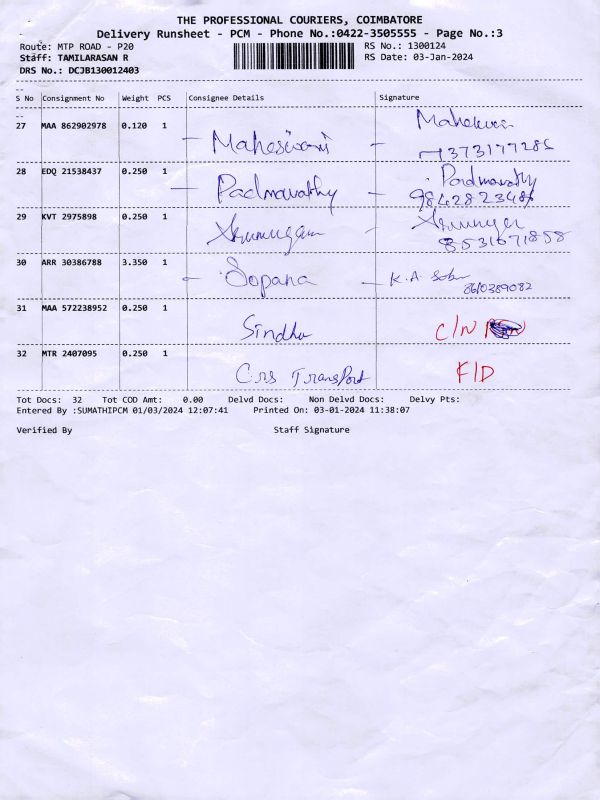 THE PROFESSIONAL COURIERS, COIMBATORE
Delivery Runsheet - PCM - Phone No.:0422-3505555 - Page No.:3
Route: MTP ROAD - P20 RS No.: 1300124
Staff: TAMILARASAN R RS Date: 03-Jan-2024
DRS No.: DCJB130012403
S No Consignment No Weight PCS Consignee Details Signature
27 MAA 862902978 0.120 1 - Maheswari -
28 EDQ 21538437 0.250 1 - Padmavathy - Padmavathy
9842823486
29 KVT 2975898 0.250 1 Arumugam -
8531671858
30 ARR 30386788 3.350 1 - Sopana - K.A.
8610389082
31 MAA 572238952 0.250 1 Sindhu C/N
32 MTR 2407095 0.250 1 Crs Transport F/D
Tot Docs: 32 Tot COD Amt: 0.00 Delvd Docs: Non Delvd Docs: Delvy Pts:
Entered By :SUMATHIPCM 01/03/2024 12:07:41 Printed On: 03-01-2024 11:38:07
Verified By Staff Signature